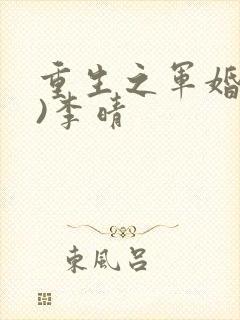 重生之军婚
)李晴
東風呂